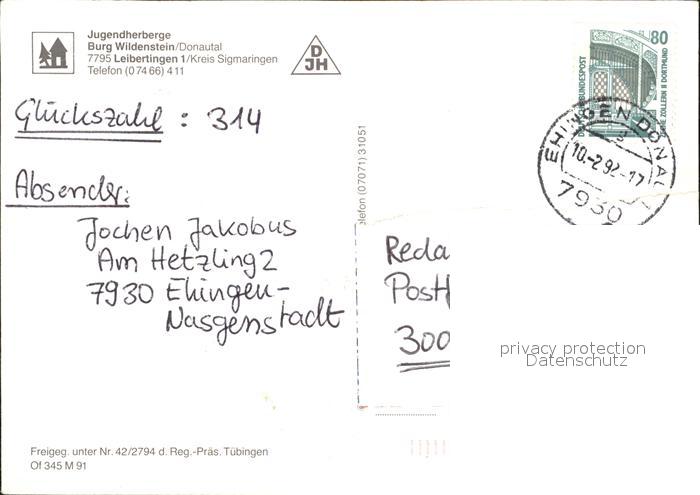 Jugendherberge
Burg Wildenstein/Donautal
7795 Leibertingen 1/Kreis Sigmaringen
Telefon (0 74 66) 4 11
D
JH
80
DEUTSCHE BUNDESPOST
ZECHE ZOLLERN II DORTMUND
EHINGEN, DONAU
10.-2.92.-17
7930
Glückszahl : 314
Absender:
Jochen Jakobus
Am Hetzling 2
7930 Ehingen-
Nasgenstadt
lefon (07071) 31051
Reda
Postf
300
privacy protection
Datenschutz
Freigeg. unter Nr. 42/2794 d. Reg.-Präs. Tübingen
Of 345 M 91